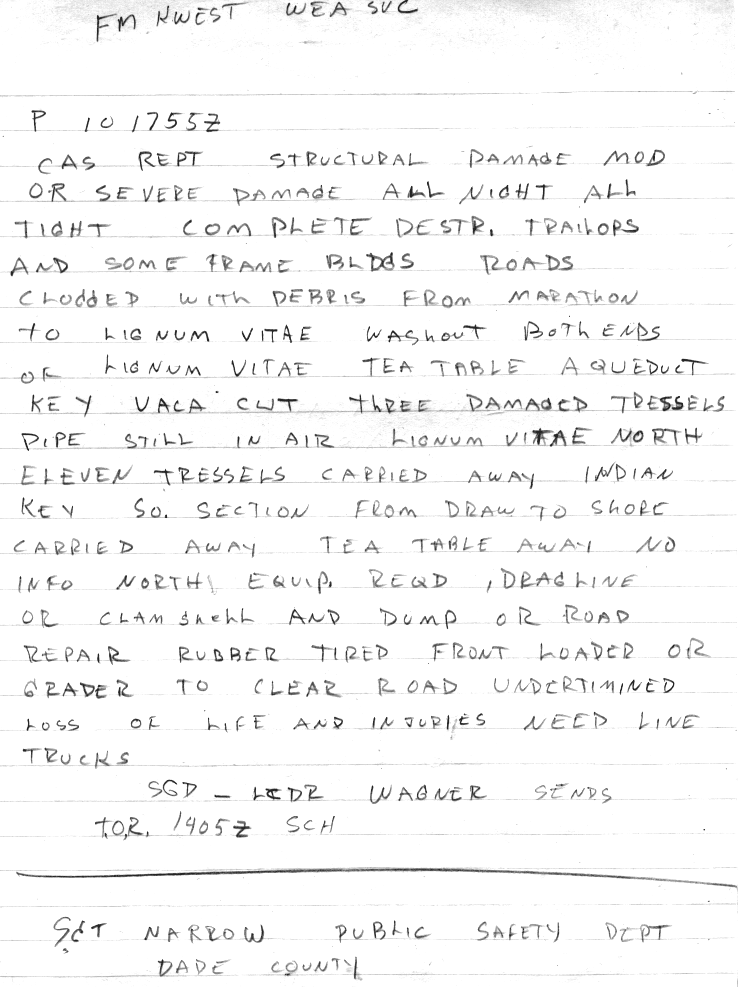 FM NWEST WEA SVC
P 101755Z
CAS REPT STRUCTURAL DAMAGE MOD
OR SEVERE DAMAGE ALL NIGHT ALL
TIGHT COMPLETE DESTR. TRAILORS
AND SOME FRAME BLDGS ROADS
CLOGGED WITH DEBRIS FROM MARATHON
TO LIGNUM VITAE WASHOUT BOTH ENDS
OF LIGNUM VITAE TEA TABLE AQUEDUCT
KEY VACA CUT THREE DAMAGED TRESSELS
PIPE STILL IN AIR LIGNUM VITAE NORTH
ELEVEN TRESSELS CARRIED AWAY INDIAN
KEY SO. SECTION FROM DRAW TO SHORE
CARRIED AWAY TEA TABLE AWAY NO
INFO NORTH EQUIP. REQD , DRAGLINE
OR CLAM SHELL AND DUMP OR ROAD
REPAIR RUBBER TIRED FRONT LOADER OR
GRADER TO CLEAR ROAD UNDERTIMINED
LOSS OF LIFE AND INJURIES NEED LINE
TRUCKS
SGD - LCDR WAGNER SENDS
T.O.R. 1405Z SCH
SGT NARROW PUBLIC SAFETY DEPT
DADE COUNTY